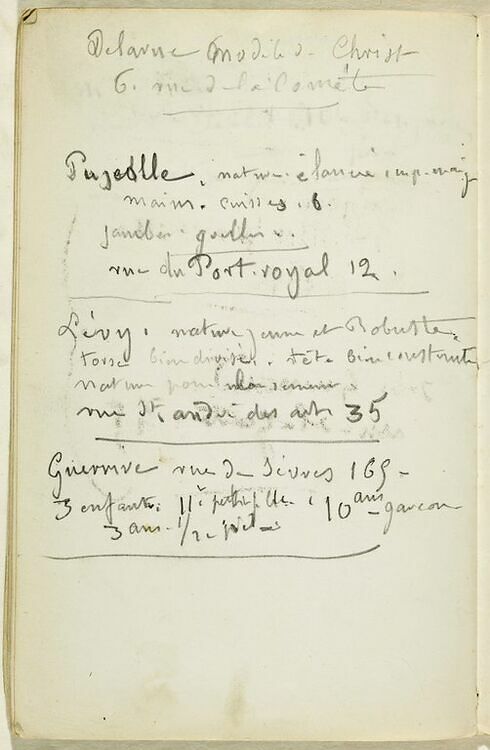 Delarue Modèle de Christ
6. rue de la Comète
Pujolle, nature élancée
mains. cuisses. 6.
jambes.
rue du Port. royal 12.
Lévy, nature jeune et Robuste.
torse bien divisée. tête bien construite
nature pour
rue St. andré des arts 35
rue de Sèvres 169
3 enfants. 11 petite fille. 10 ans garçon
3 ans. 1/2